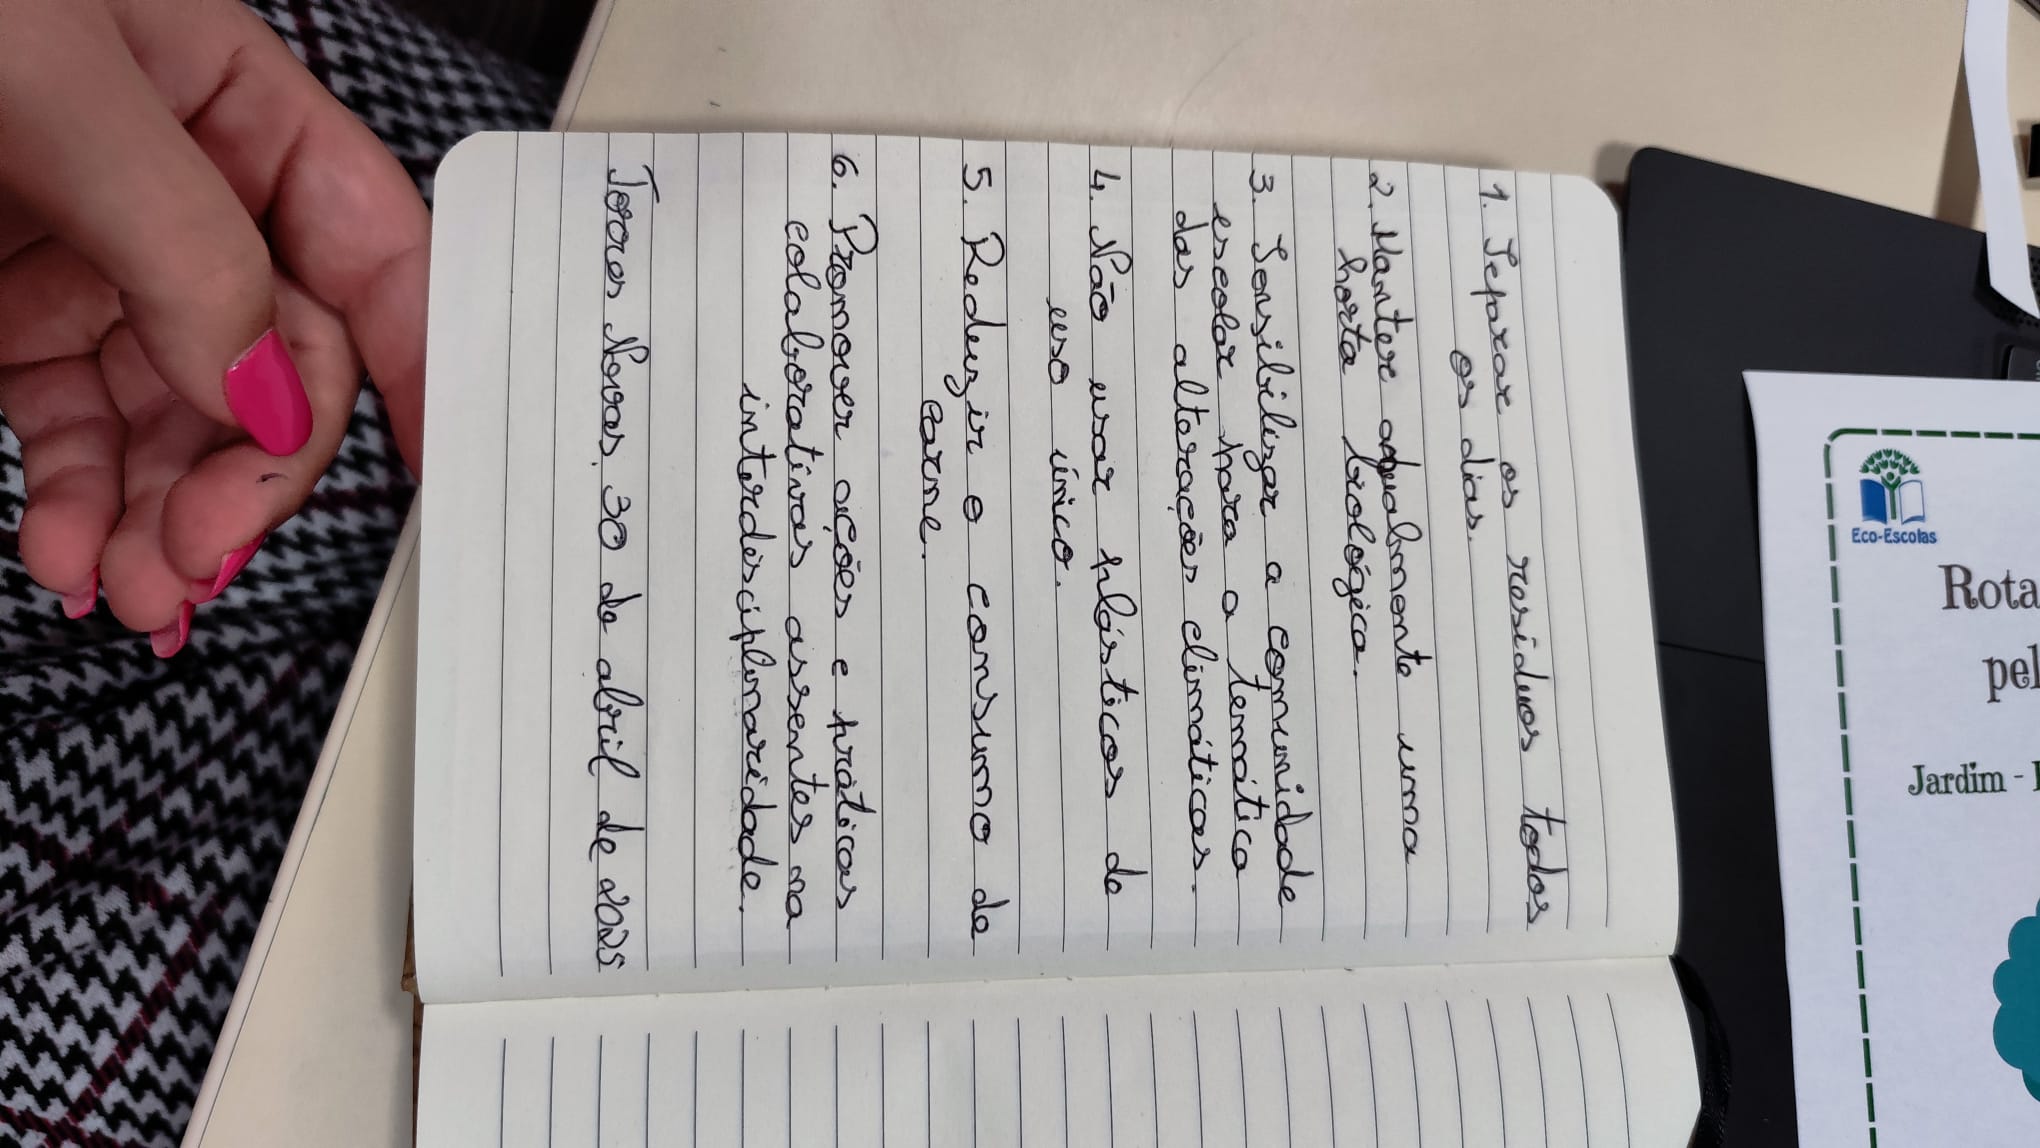 1. Separar os resíduos todos
os dias.
2. Manter atualmente uma
horta biológica.
3. Sensibilizar a comunidade
escolar para a temática
das alterações climáticas.
4. Não usar plásticos de
uso único.
5. Reduzir o consumo de
carne.
6. Promover ações e práticas
colaborativas assentes na
interdisciplinaridade.
Torres Novas, 30 de abril de 2025
Eco-Escolas
Rota
pel
Jardim -